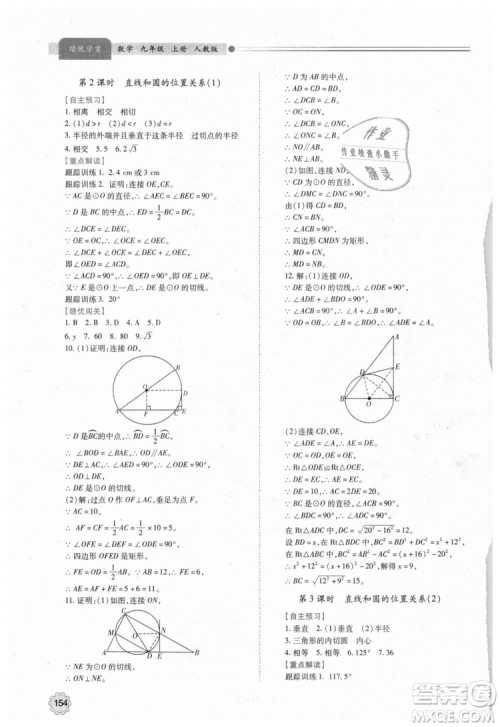 培优学案 数学 九年级 上册 人教版
第2课时 直线和圆的位置关系(1)
【自主预习】
1. 相离 相交 相切
2. (1)d＞r (2)d=r
3. 半径的外端并且垂直于这条半径 过切点的半径
4. 相交 5. 5 6. 2√3
【重点解读】
跟踪训练1. 2. 4 cm
跟踪训练2. 证明:连接OE,CE.
∵ AC是⊙O的直径,∴ ∠AEC=90°.
∵ D是BC的中点,∴ DE=1/2BC=DC.
∴ ∠DCE=∠DEC.
∵ OE=OC,∴ ∠OCE=∠OEC.
∴ ∠DCE+∠OCE=∠DEC+∠OEC,
即∠ACD=∠OED.
∵ ∠ACD=90°,∴ ∠OED=90°.
又∵ E是⊙O上一点,∴ DE是⊙O的切线.
跟踪训练3. 20°
【绩优闯关】
1. B 2. B 3. D 4. B 5. C
6. y 7. 60 8. 5 9. √3
10. (1)证明:连接OD,
B
O
D
A F C E
∵ D是BC的中点,∴ BD=DC.
∴ ∠BOD=∠BAE.∴ OD∥AE.
∵ DE⊥AC,∴ ∠ADE=90°.
∴ ∠AED=90°.∴ ∠ODE=90°.
∴ OD⊥DE.
∴ DE是⊙O的切线.
(2)解:过点O作OF⊥AC于点F.
∵ AC=10,
∴ AF=CF=1/2AC=1/2×10=5.
∵ ∠OFE=∠DEF=∠ODE=90°,
∴ 四边形OFED为矩形.
∴ FE=OD=1/2AB.
∵ AB=12,∴ FE=6.
∴ AE=AF+FE=5+6=11.
11. 证明:(1)连接ON,
C
M N
O
A D E B
∵ NE为⊙O的切线,
∴ ON⊥NE.
154
∵ D为AB的中点,
∴ AD=CD=DB.
∴ ∠DCB=∠DBC.
∵ OC=ON,
∴ ∠ONC=∠OCN.
∴ ∠ONC=∠B.
∴ NO∥AB.
∴ NE⊥AB.
(2)如图,连接DN,
则∠CMD=∠CND=90°.
由(1)得AD=CD=DB,
∴ CN=BN.
又∵ ∠ACB=90°,
∴ 四边形CMDN为矩形.
∴ DM=CN.
∴ MD=NB.
12. 解:(1)连接OD,
∵ DE是⊙O的切线,
∴ ∠ODE=90°.
∴ ∠ADE+∠BDO=90°.
∵ ∠ACB=90°,
∴ ∠A+∠B=90°.
∵ OD=OB,∴ ∠B=∠BDO.∴ ∠ADE=∠A.
A
D E
B O C
(2)连接CD,OE,
∵ ∠ADE=∠A,∴ AE=DE.
∵ OC=OD,
∴ Rt△ODE≌Rt△OCE.
∴ DE=EC.∴ AE=EC.
∵ DE=10,∴ AC=2DE=20.
∵ BC是⊙O的直径,
∴ ∠BDC=90°.
在Rt△ADC中,DC=√(20²-16²)=12.
设BD=x,在Rt△BDC中,BC²=x²+12²,
在Rt△ABC中,BC²=(x+16)²-20²,
∴ x²+12²=(x+16)²-20².
解得x=9.
∴ BC=√(12²+9²)=15.
第3课时 直线和圆的位置关系(2)
【自主预习】
1. 垂直 2. (1)垂直 (2)半径
3. 三角形的内切圆 内心
4. 相等 5. 相等 6. 125° 7. 44
【重点解读】
跟踪训练1. 117.5°
作业
作业检查小助手
精灵
答案圈
MXQE.COM